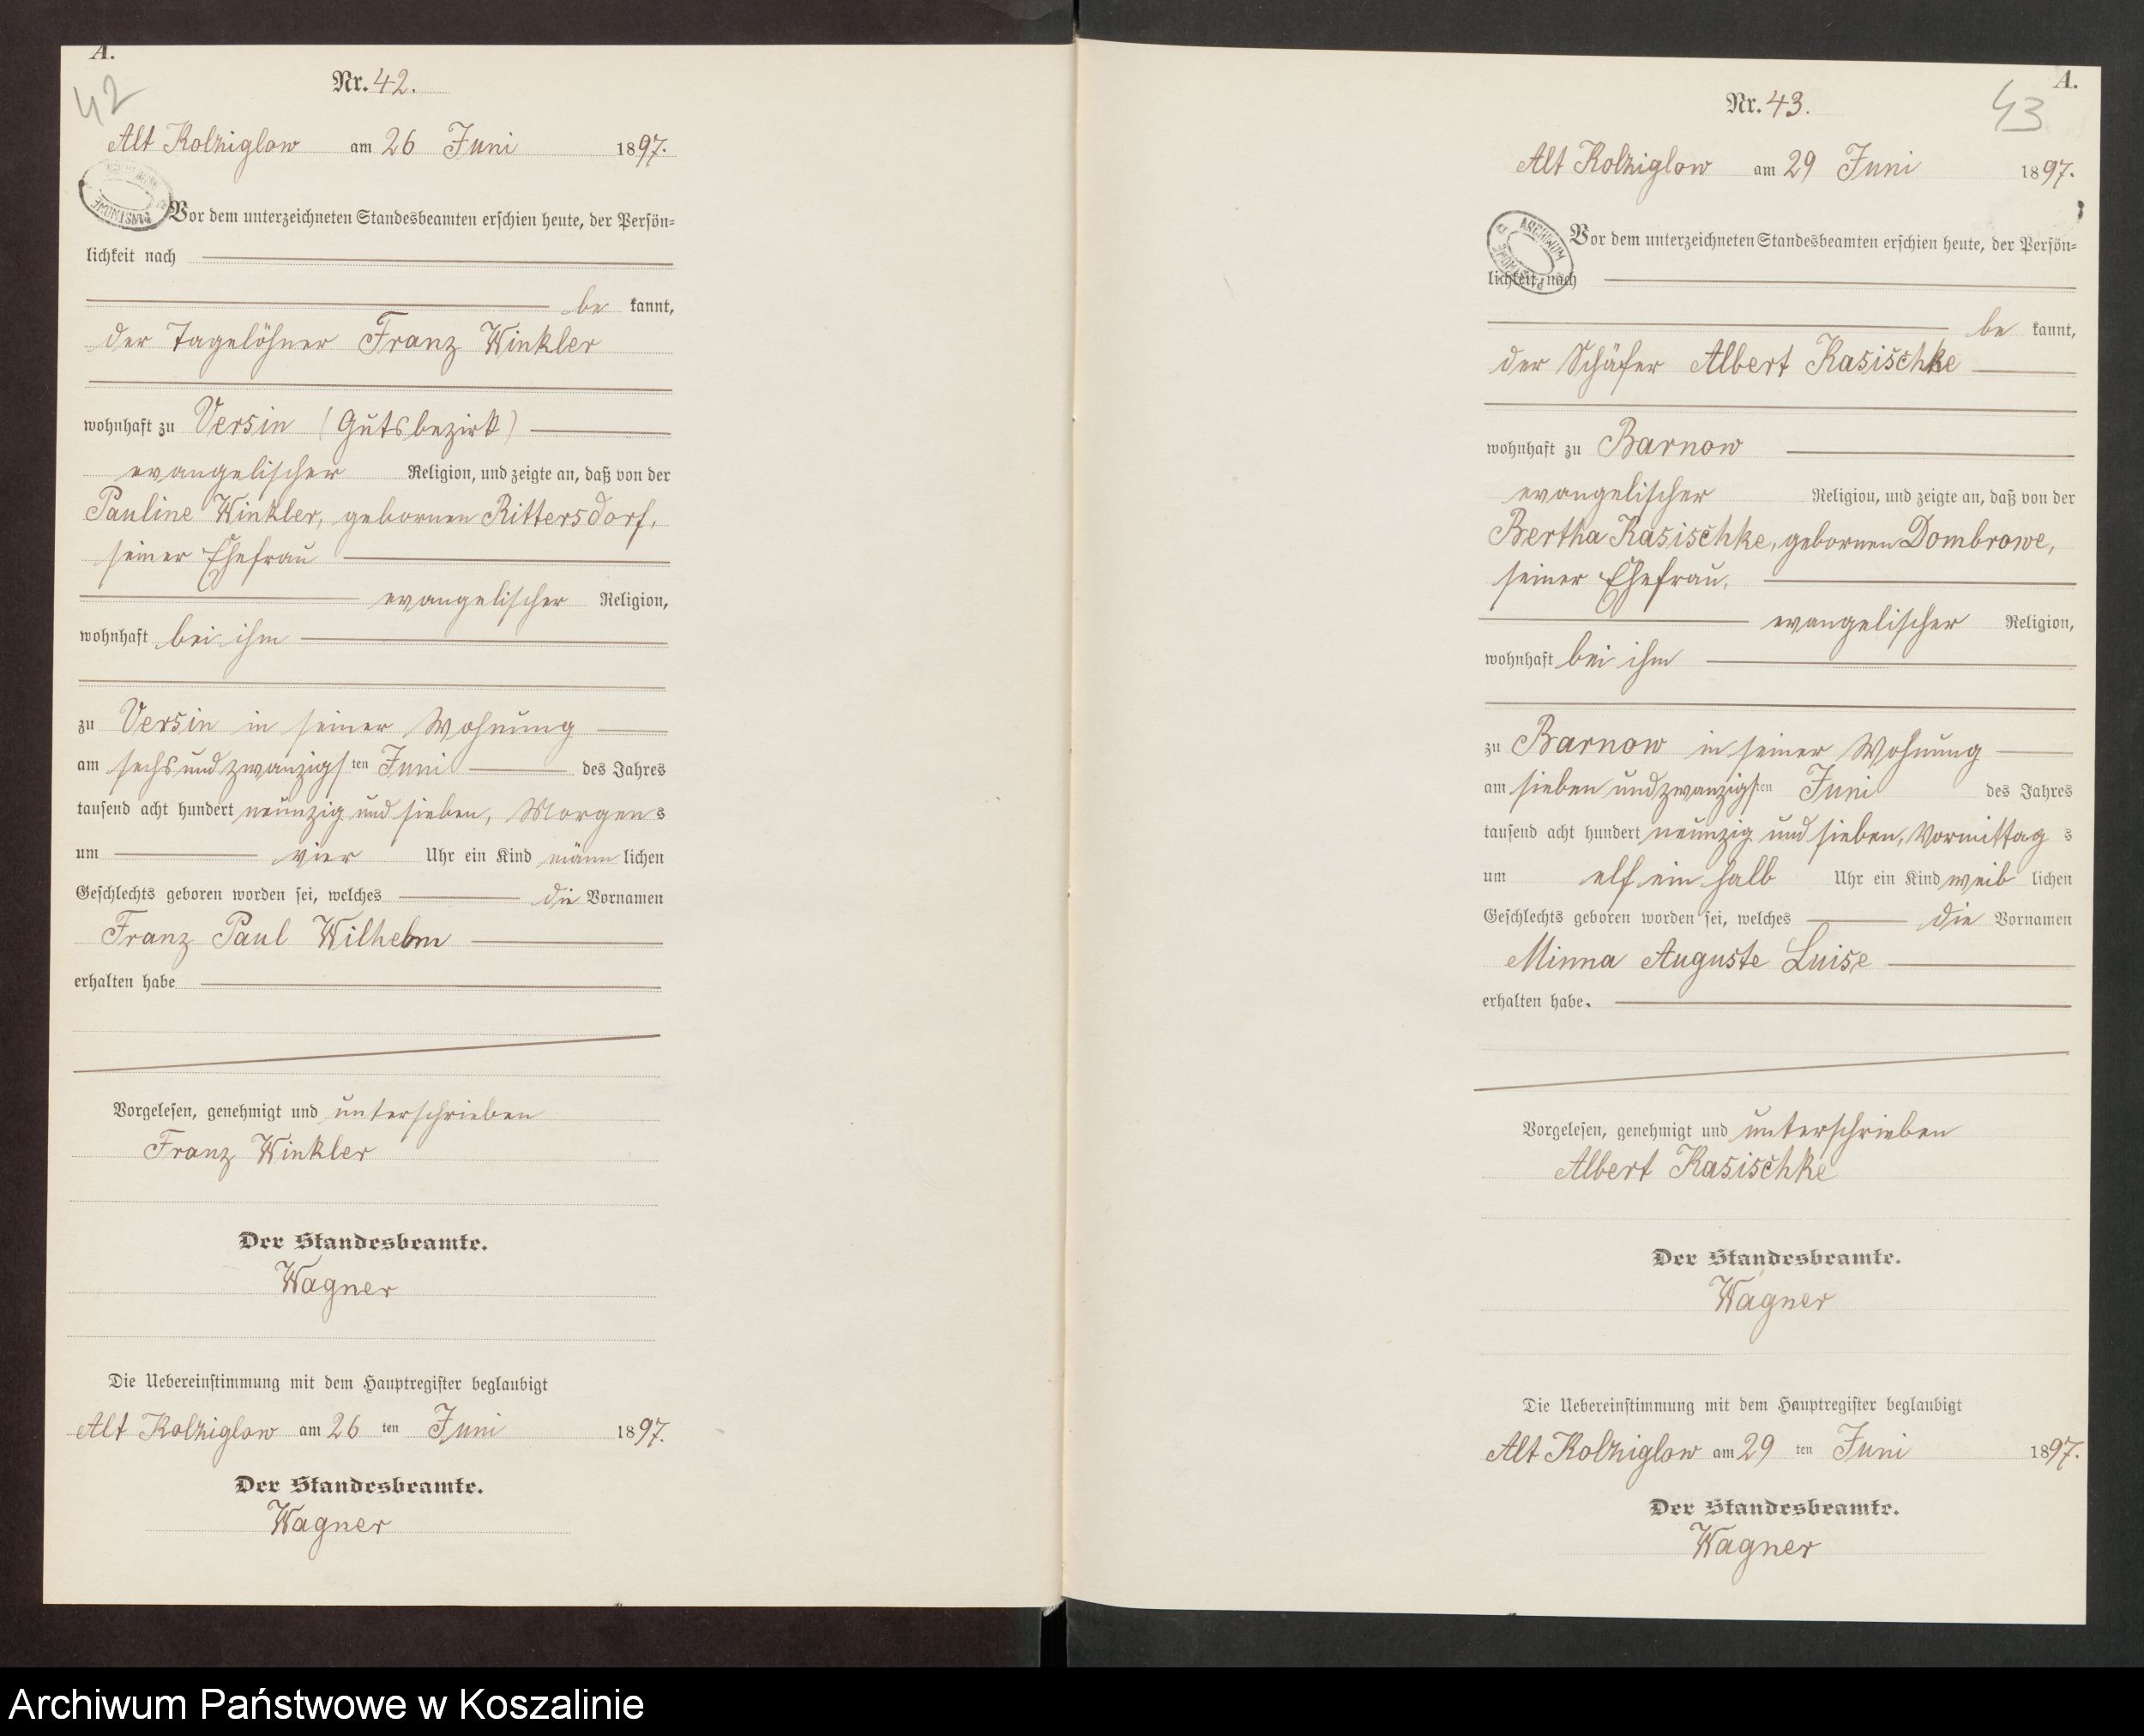 A.
42
Nr. 42.
Alt Kolziglow am 26 Juni 1897.
Vor dem unterzeichneten Standesbeamten erschien heute, der Persön-
lichkeit nach
be kannt,
der Tagelöhner Franz Winkler
wohnhaft zu Versin (Gutsbezirk)
evangelischer Religion, und zeigte an, daß von der
Pauline Winkler, gebornen Rittersdorf,
seiner Ehefrau
evangelischer Religion,
wohnhaft bei ihm
zu Versin in seiner Wohnung
am sechs und zwanzigsten Juni des Jahres
tausend acht hundert neunzig und sieben, Morgens
um vier Uhr ein Kind männlichen
Geschlechts geboren worden sei, welches die Vornamen
Franz Paul Wilhelm
erhalten habe
Vorgelesen, genehmigt und unterschrieben
Franz Winkler
Der Standesbeamte.
Wagner
Die Uebereinstimmung mit dem Hauptregister beglaubigt
Alt Kolziglow am 26 ten Juni 1897.
Der Standesbeamte.
Wagner
A.
43
Nr. 43.
Alt Kolziglow am 29 Juni 1897.
ARCHIWUM
Vor dem unterzeichneten Standesbeamten erschien heute, der Persön-
lichkeit nach
be kannt,
der Schäfer Albert Kasischke
wohnhaft zu Barnow
evangelischer Religion, und zeigte an, daß von der
Bertha Kasischke, gebornen Dombrowe,
seiner Ehefrau,
evangelischer Religion,
wohnhaft bei ihm
zu Barnow in seiner Wohnung
am sieben und zwanzigsten Juni des Jahres
tausend acht hundert neunzig und sieben, Vormittags
um elf ein halb Uhr ein Kind weiblichen
Geschlechts geboren worden sei, welches die Vornamen
Minna Auguste Luise
erhalten habe.
Vorgelesen, genehmigt und unterschrieben
Albert Kasischke
Der Standesbeamte.
Wagner
Die Uebereinstimmung mit dem Hauptregister beglaubigt
Alt Kolziglow am 29 ten Juni 1897.
Der Standesbeamte.
Wagner
Archiwum Państwowe w Koszalinie